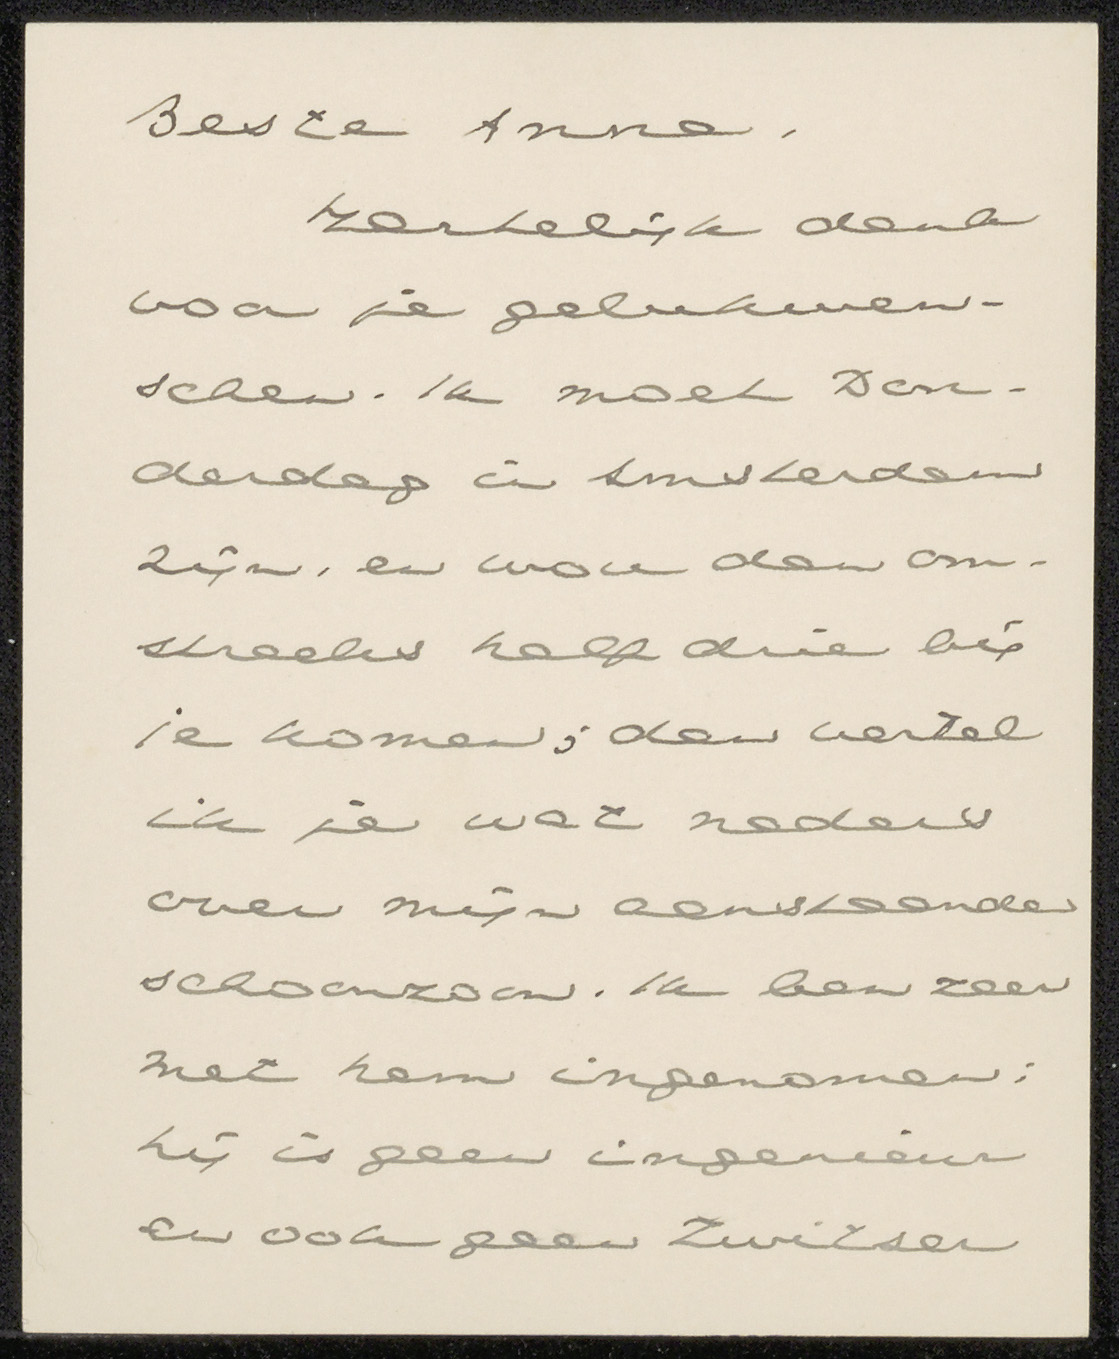 Beste Anna.
Hartelijk dank
voor je gelukwen-
schen. Ik moet Don-
derdag in Amsterdam
zijn, en wou dan om-
streeks half drie bij
je komen; dan vertel
ik je wat naders
over mijn aanstaanden
schoonzoon. Ik ben zeer
met hem ingenomen:
hij is geen ingenieur
en ook geen Zwitser